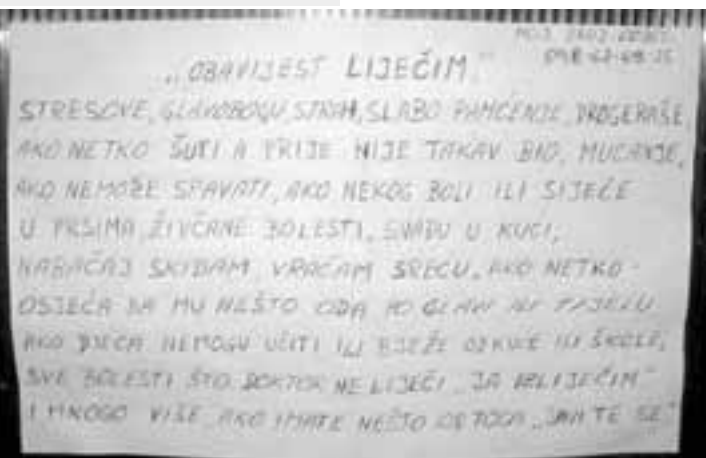 „OBAVIJEST LIJEČIM."
STRESOVE, GLAVOBOLJU, STRAH, SLABO PAMĆENJE,
AKO NETKO ŠUTI A PRIJE NIJE TAKAV BIO, MUCANJE,
AKO NEMOŽE SPAVATI, AKO NEKOG BOLI ILI SIJEĆE
U PRSIMA, ŽIVČANE BOLESTI, SVAĐU U KUĆI,
NABAČAJ SKIDAM, VRAČAM SREĆU, AKO NETKO
OSJEĆA DA MU NEŠTO ODA PO GLAVI TIJELU
AKO DJECA NEMOGU UČITI ILI BJEŽE OD KUĆE ILI ŠKOLE,
SVE BOLESTI ŠTO DOKTOR NE LIJEČI „JA IZLIJEČIM"
I MNOGO VIŠE AKO IMATE NEŠTO OD TOGA „JAVITE SE"